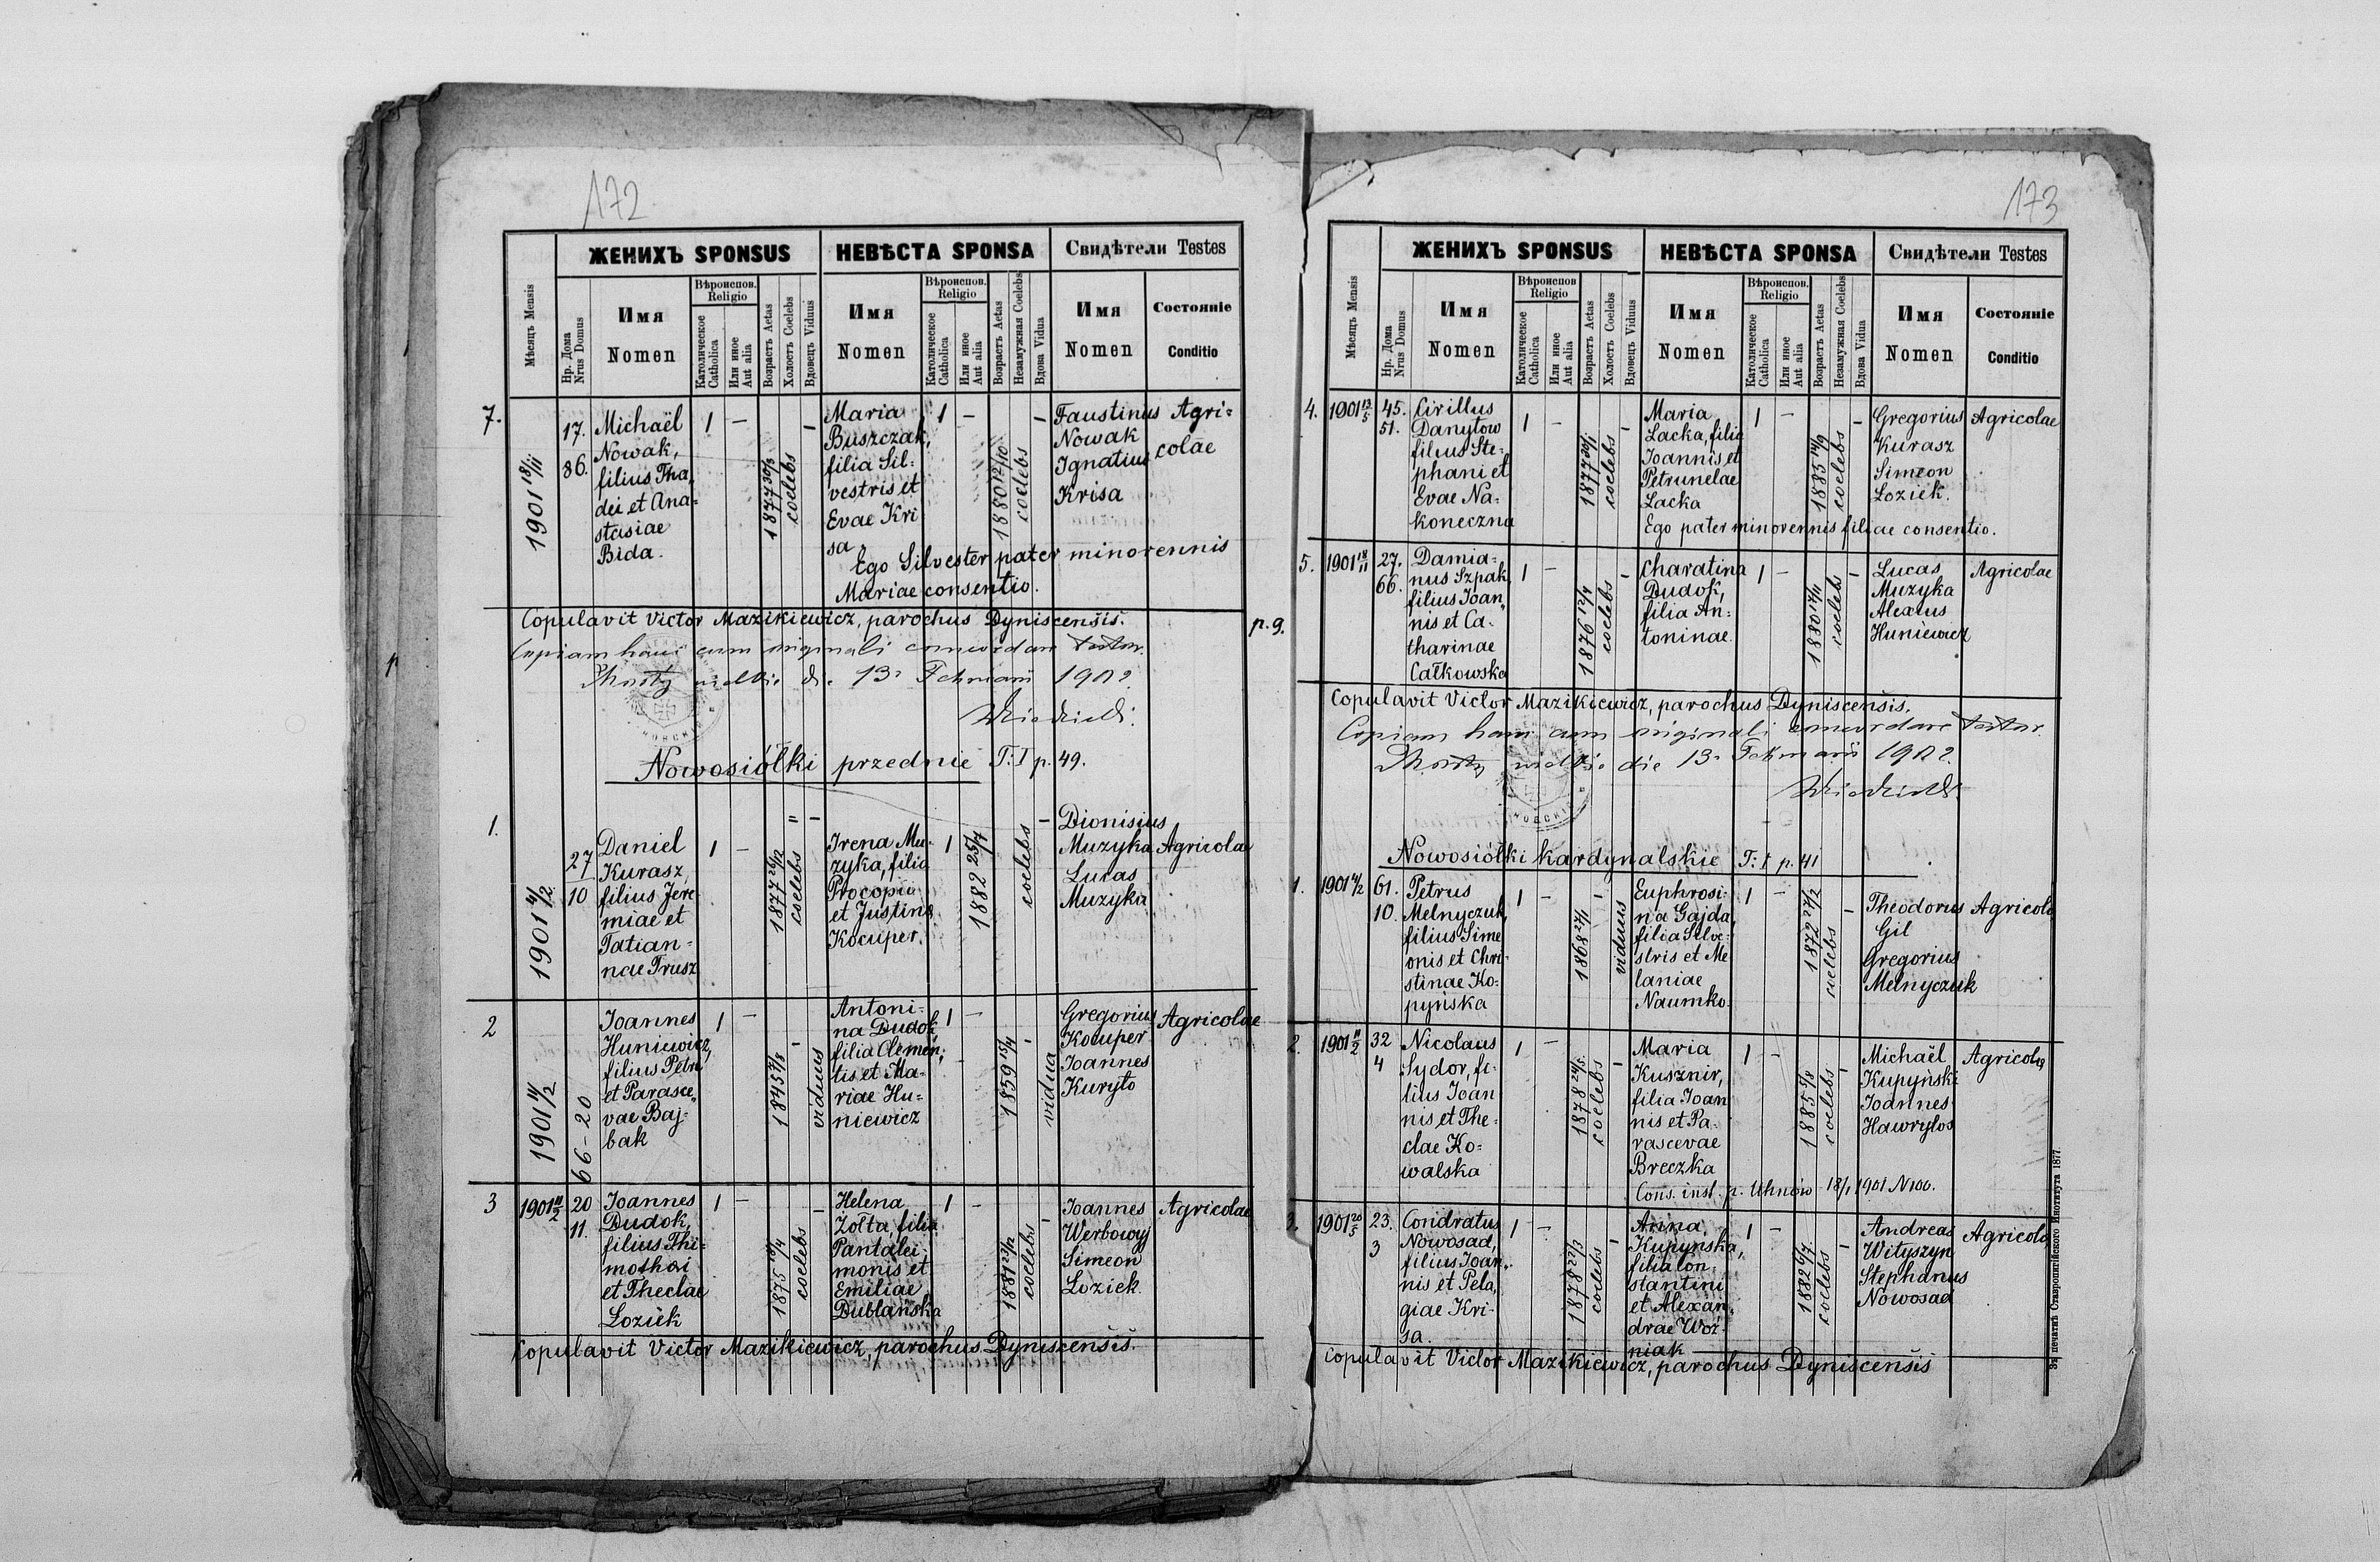 172
ЖЕНИХЪ SPONSUS
НЕВѢСТА SPONSA
Свидѣтели Testes
Мѣсяцъ Mensis
Нр. Дома
Nrus Domus
Имя
Nomen
Вѣроиспов.
Religio
Католическое
Catholica
Или иное
Aut alia
Возрастъ Aetas
Холостъ Coelebs
Вдовецъ Viduus
Имя
Nomen
Вѣроиспов.
Religio
Католическое
Catholica
Или иное
Aut alia
Возрастъ Aetas
Незамужная Coelebs
Вдова Vidua
Имя
Nomen
Состоянiе
Conditio
7.
1901 18/11
17.
86.
Michaël
Nowak,
filius Tha
dei et Ana-
stasiae
Bida.
1 –
1877 30/3
coelebs
–
Maria
Buszczak,
filia Sil-
vestris et
Evae Kri
sa
1 –
1880 12/10
coelebs
–
Faustinus
Nowak
Ignatius
Krisa
Agri-
colae
Ego Silvester pater minorennis
Mariae consentio.
Copulavit Victor Mazikiewicz, parochus Dyniscensis.
Copiam hanc cum originali concordare testor.
Mosty wielkie d. 13. Februarii 1902
Nowosiółki przednie T: I p. 49.
1.
1901 4/2
27
10
Daniel
Kurasz
filius Jere
miae et
Tatian-
nae Trusz
1 –
1877 26/12
coelebs
Irena Mu-
zyka, filia
Procopii
et Justina
Kocuper.
1
1882 25/7
coelebs
–
Dionisius
Muzyka
Lucas
Muzyka
Agricolae
2
1901 4/2
66-20
Joannes
Huniewicz,
filius Petri
et Parasce-
vae Baj-
bak
1 –
1845 7/8
viduus
Antoni-
na Dudok
filia Clemen-
tis et Ma-
riae Hu-
niewicz
1 –
1859 15/4
vidua
Gregorius
Kocuper
Joannes
Kuryło
Agricolae
3
1901 11/2
20
11.
Joannes
Dudok,
filius Thi-
mothei
et Theclae
Loziek
1 –
1875
coelebs
–
Helena
Zołta, filia
Pantalei-
monis et
Emiliae
Dublańska
1 –
1881 23/12
coelebs
–
Joannes
Werbowyj
Simeon
Loziek.
Agricolae
Copulavit Victor Mazikiewicz, parochus Dyniscensis.
173
ЖЕНИХЪ SPONSUS
НЕВѢСТА SPONSA
Свидѣтели Testes
Мѣсяцъ Mensis
Нр. Дома
Nrus Domus
Имя
Nomen
Вѣроиспов.
Religio
Католическое
Catholica
Или иное
Aut alia
Возрастъ Aetas
Холостъ Coelebs
Вдовецъ Viduus
Имя
Nomen
Вѣроиспов.
Religio
Католическое
Catholica
Или иное
Aut alia
Возрастъ Aetas
Незамужная Coelebs
Вдова Vidua
Имя
Nomen
Состоянiе
Conditio
4.
1901 13/5
45.
51.
Cirillus
Danyłow
filius Ste-
phani et
Evae Na-
koneczna
1 –
1877 30/1
coelebs
–
Maria
Lacka, filia
Joannis et
Petrunelae
Lacka
1 –
1883 14/9
coelebs
–
Gregorius
Kurasz
Simeon
Loziek.
Agricolae
Ego pater minorennis filiae consentio.
5.
1901 18/11
27.
66.
Damia-
nus Szpak,
filius Joan-
nis et Ca-
tharinae
Całkowska
1 –
1876 12/4
coelebs
–
Charatina
Dudok,
filia An-
toninae.
1 –
1880 17/11
coelebs
–
Lucas
Muzyka
Alexius
Huniewicz
Agricolae
p. 9.
Copulavit Victor Mazikiewicz, parochus Dyniscensis.
Copiam hanc cum originali concordare testor.
Mosty wielkie die 13. Februarii 1902.
Nowosiółki kardynalskie T: I p. 41
1.
1901 4/2
61.
10.
Petrus
Melnyczuk,
filius Sime
onis et Chri-
stinae Ko-
pyńska
1 –
1868 27/1
viduus
Euphrosi-
na Gajda,
filia Silve-
stris et Me
laniae
Naumko.
1 –
1872 27/2
coelebs
–
Theodorus
Gil
Gregorius
Melnyczuk
Agricolae
2.
1901 11/2
32
4
Nicolaus
Sydor, fi-
lius Joan
nis et The-
clae Ko-
walska
1 –
1878 24/5
coelebs
–
Maria
Kusznir,
filia Joan
nis et Pa-
rascevae
Breczka
1 –
1885 5/8
coelebs
–
Michaël
Kupyński
Joannes
Hawryłos
Agricolae
Cons. inst. p. Uhnów 18/1 1901 N 100.
3.
1901 20/5
23.
3
Condratus
Nowosad,
filius Joan-
nis et Pela-
giae Kri-
sa.
1 –
1878 22/3
coelebs
–
Anna
Kupynska,
filia Con-
stantini
et Alexan-
drae Woź-
niak
1 –
1882 6/7
coelebs
–
Andreas
Wityszyn
Stephanus
Nowosad
Agricolae
Copulavit Victor Mazikiewicz, parochus Dyniscensis
Зъ печатнѣ Ставропигiйского Института 1877.